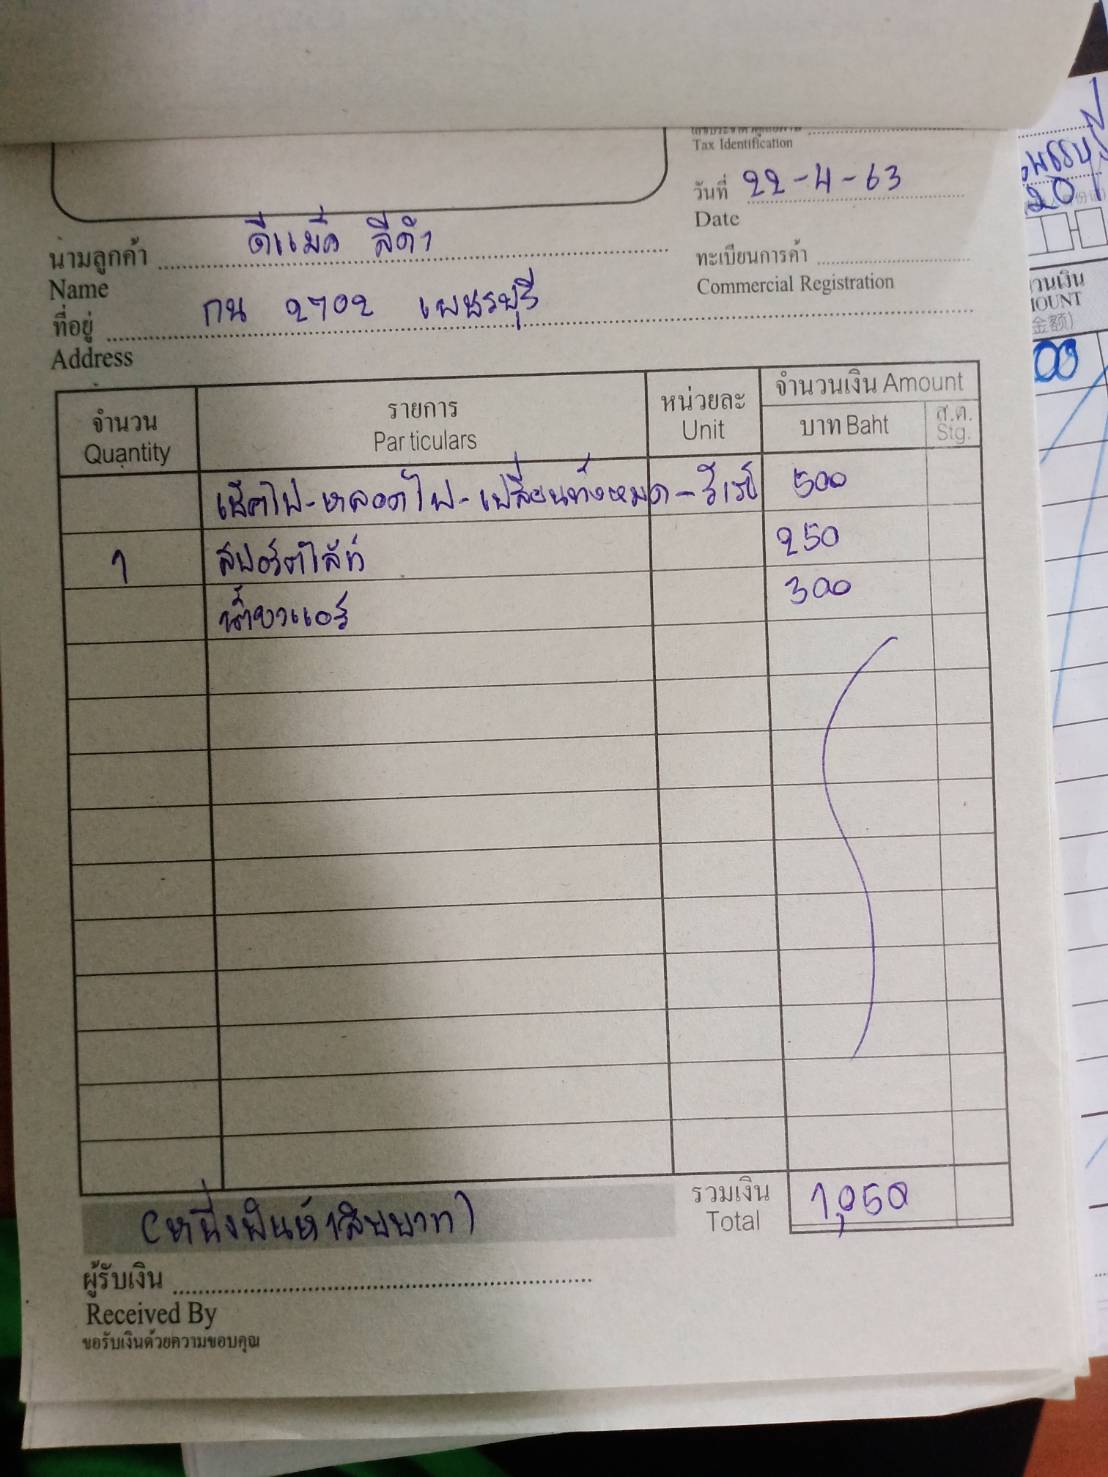 Tax Identification
วันที่ 22-4-63
Date
นามลูกค้า ดีแม็ค สีดำ
Name
ทะเบียนการค้า
Commercial Registration
ที่อยู่ กน 2702 เพชรบุรี
Address
จำนวน รายการ หน่วยละ จำนวนเงิน Amount
Quantity Particulars Unit บาท Baht ส.ต. Stg.
เช็คไฟ-หลอดไฟ-เปลี่ยนทั้งหมด-รีเรย์ 500
1 สปอร์ตไล้ท์ 250
น้ำยาแอร์ 300
(หนึ่งพันห้าสิบบาท) รวมเงิน 1,050
Total
ผู้รับเงิน
Received By
ขอรับเงินด้วยความขอบคุณ
20
OUNT
金额)
00